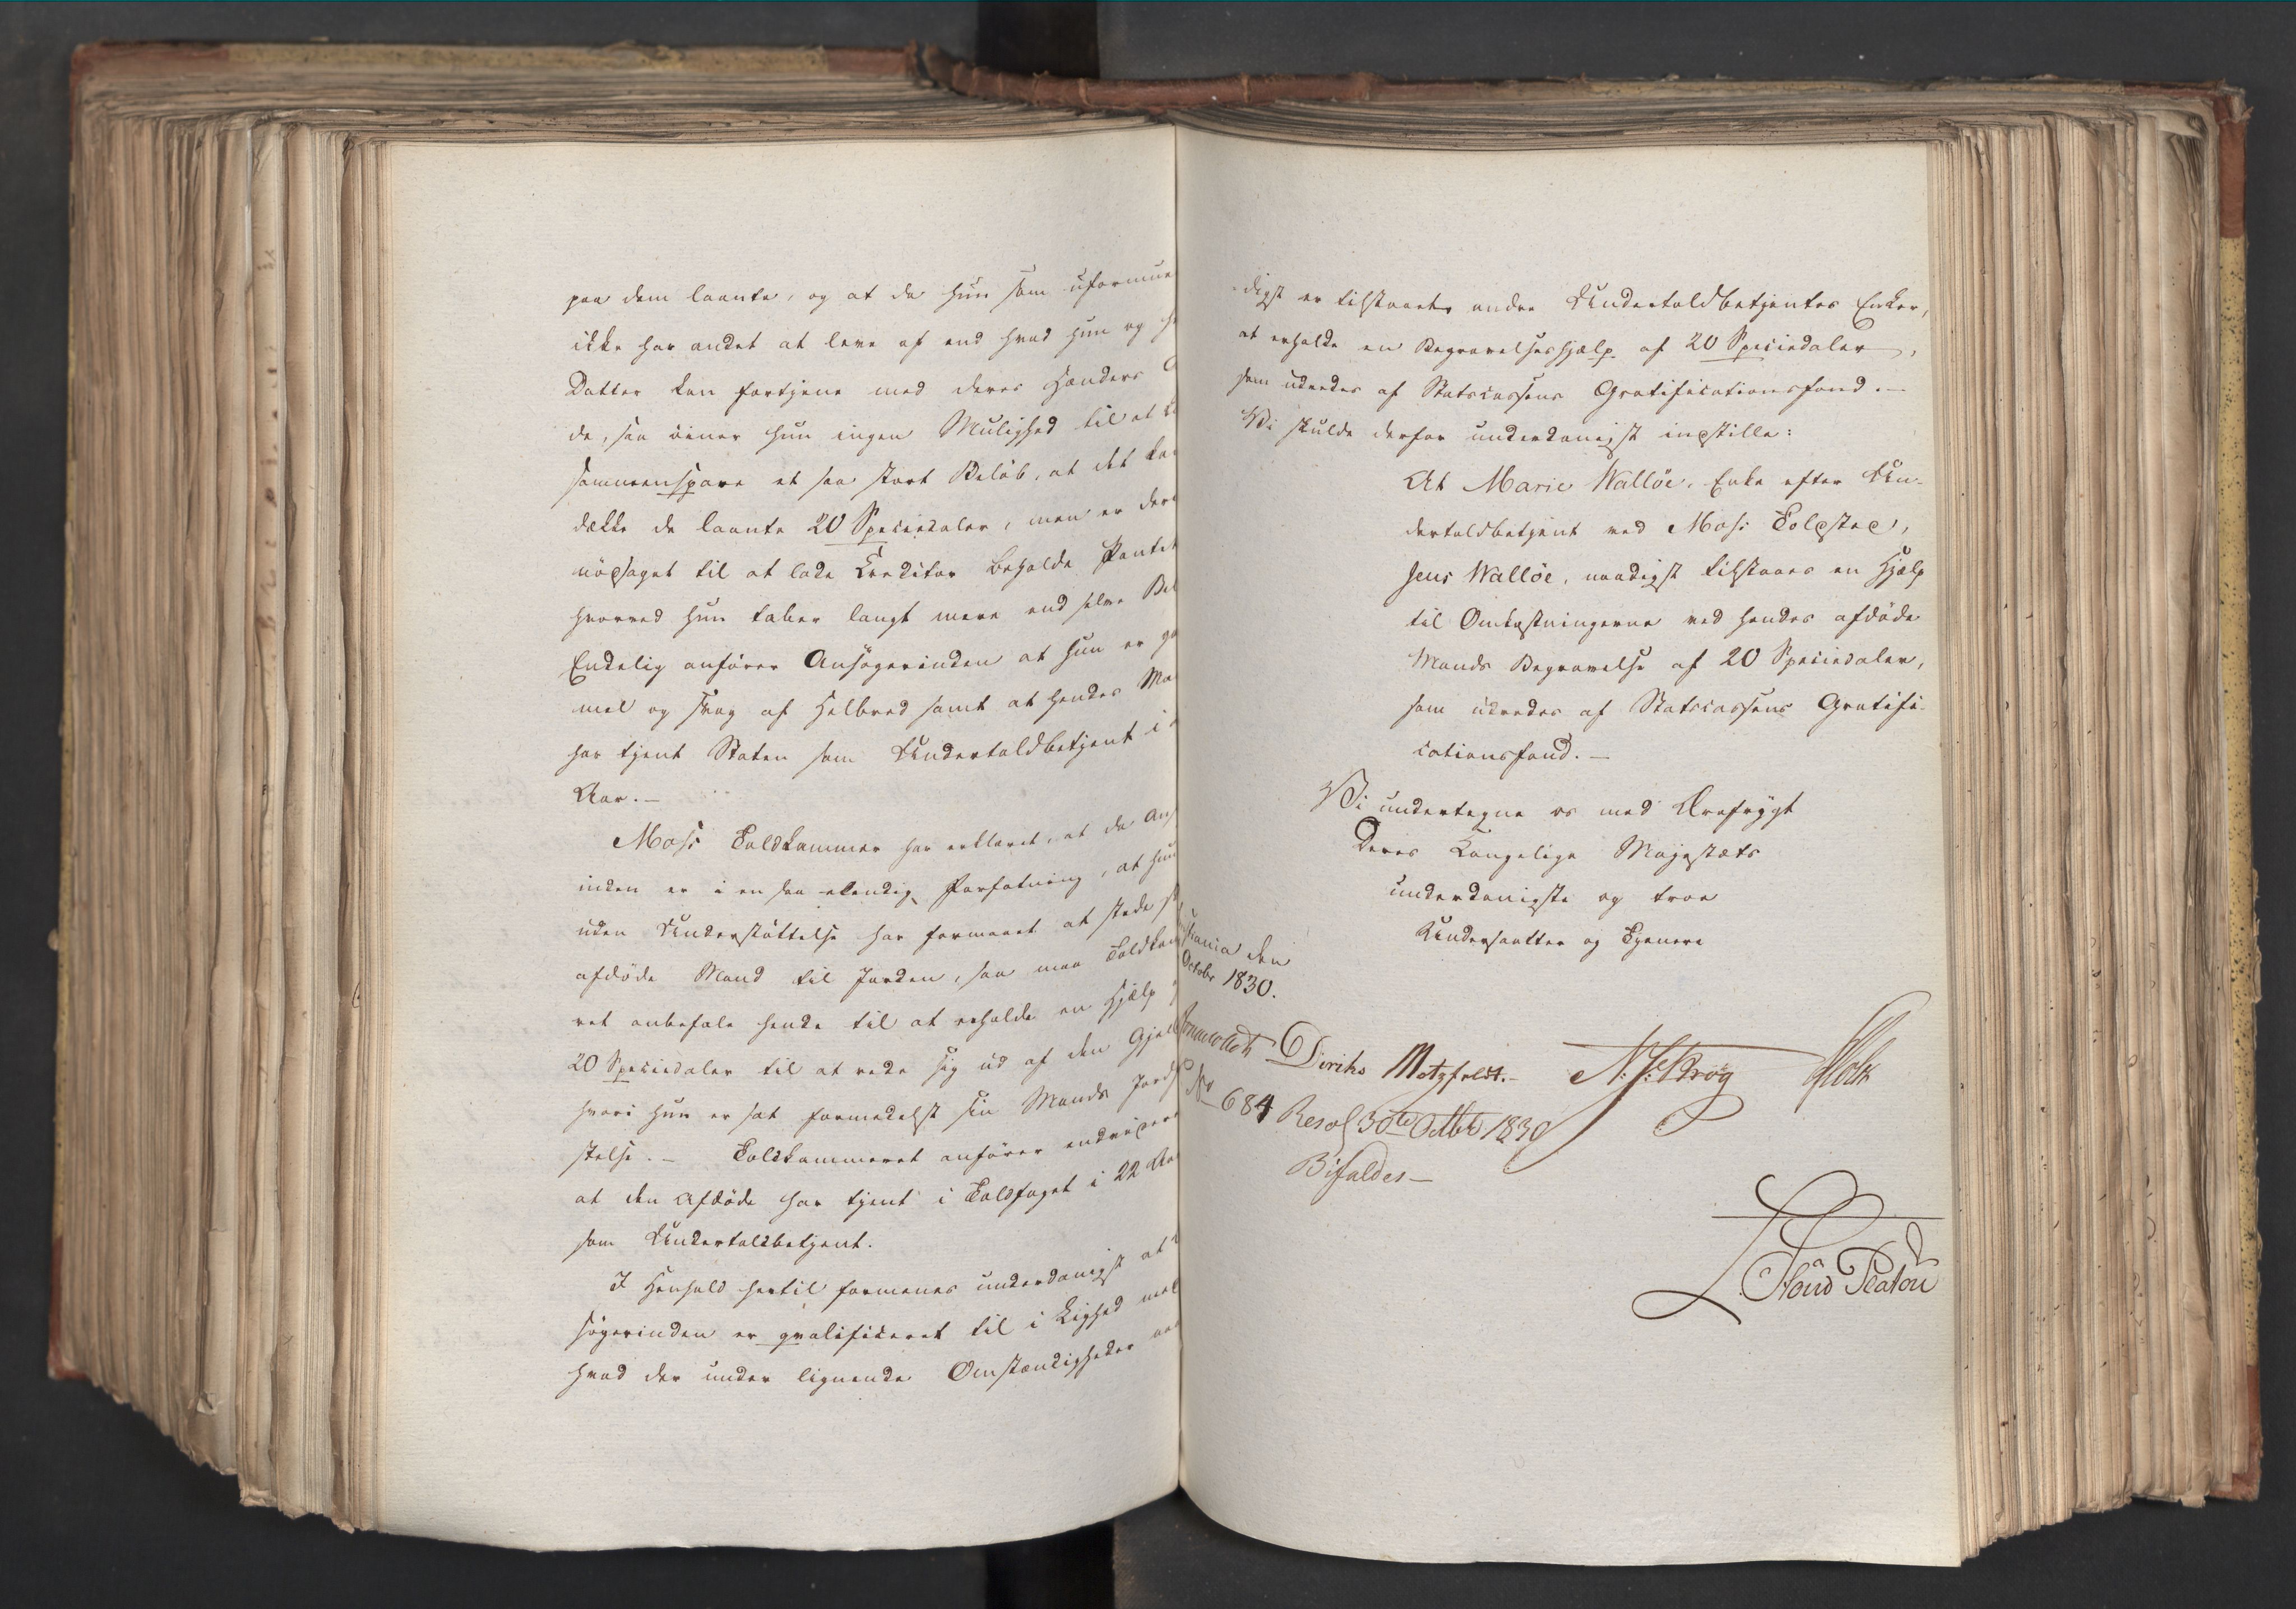 paa dem laante, og at da hun som uformue
ikke har andet at leve af end hvad hun og h
Datter kan fortjene med deres Hænders
de, saa öiner hun ingen Mulighed til at
sammenspare et saa stort Belöb, at det kan
dække de laante 20 Speciedaler, men er der
nödsaget til at lade Creditor beholde Pantet
hvorved hun taber langt mere end selve Bel
Endelig anförer Ansögerinden at hun er ga
mel og svag af Helbred samt at hendes Ma
har tjent Staten som Undertoldbetjent i
Aar.—
Moss Toldkammer har erklæret, at da Ans
inden er i en saa elendig Forfatning, at hun
uden Understöttelse har formaaet at stede s
afdöde Mand til Jorden, saa maa Toldkam
ret anbefale hende til at erholde en Hjælp
20 Speciedaler til at rede sig ud af den Gjæld
hvori hun er sat formedelst sin Mands Jords
telse.— Toldkammeret anförer endvidere
at den Afdöde har tjent i Toldfaget i 22 Aar
som Undertoldbetjent.
I Henhold hertil formenes underdanigst at
sögerinden er qvalificeret til i Lighed med
hvad der under lignende Omstændigheder naa
-digst er tilstaaet andre Undertoldbetjentes Enker,
at erholde en Begravelseshjælp af 20 Speciedaler,
som udredes af Statscassens Gratificationsfond.—
Vi skulde derfor underdanigst indstille:
At Marie Wallöe, Enke efter Un-
dertoldbetjent ved Moss Toldsted,
Jens Wallöe, naadigst tilstaaes en Hjælp
til Omkostningerne ved hendes afdöde
Mands Begravelse af 20 Speciedaler,
som udredes af Statscassens Gratifi-
cationsfond.—
Vi undertegne os med Ærefrygt
Deres Kongelige Majestæts
underdanigste og troe
Undersaatter og Tjenere
stiania den
October 1830.
Diriks Motzfeldt.— N: J: Krog Holst
No 684 Resol 30te Octbr. 1830
Bifaldes—